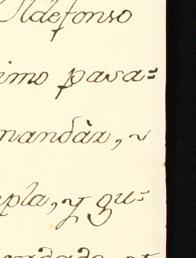 Ildefonso
imo pasa=
nandàr, ~
pla, y gu=